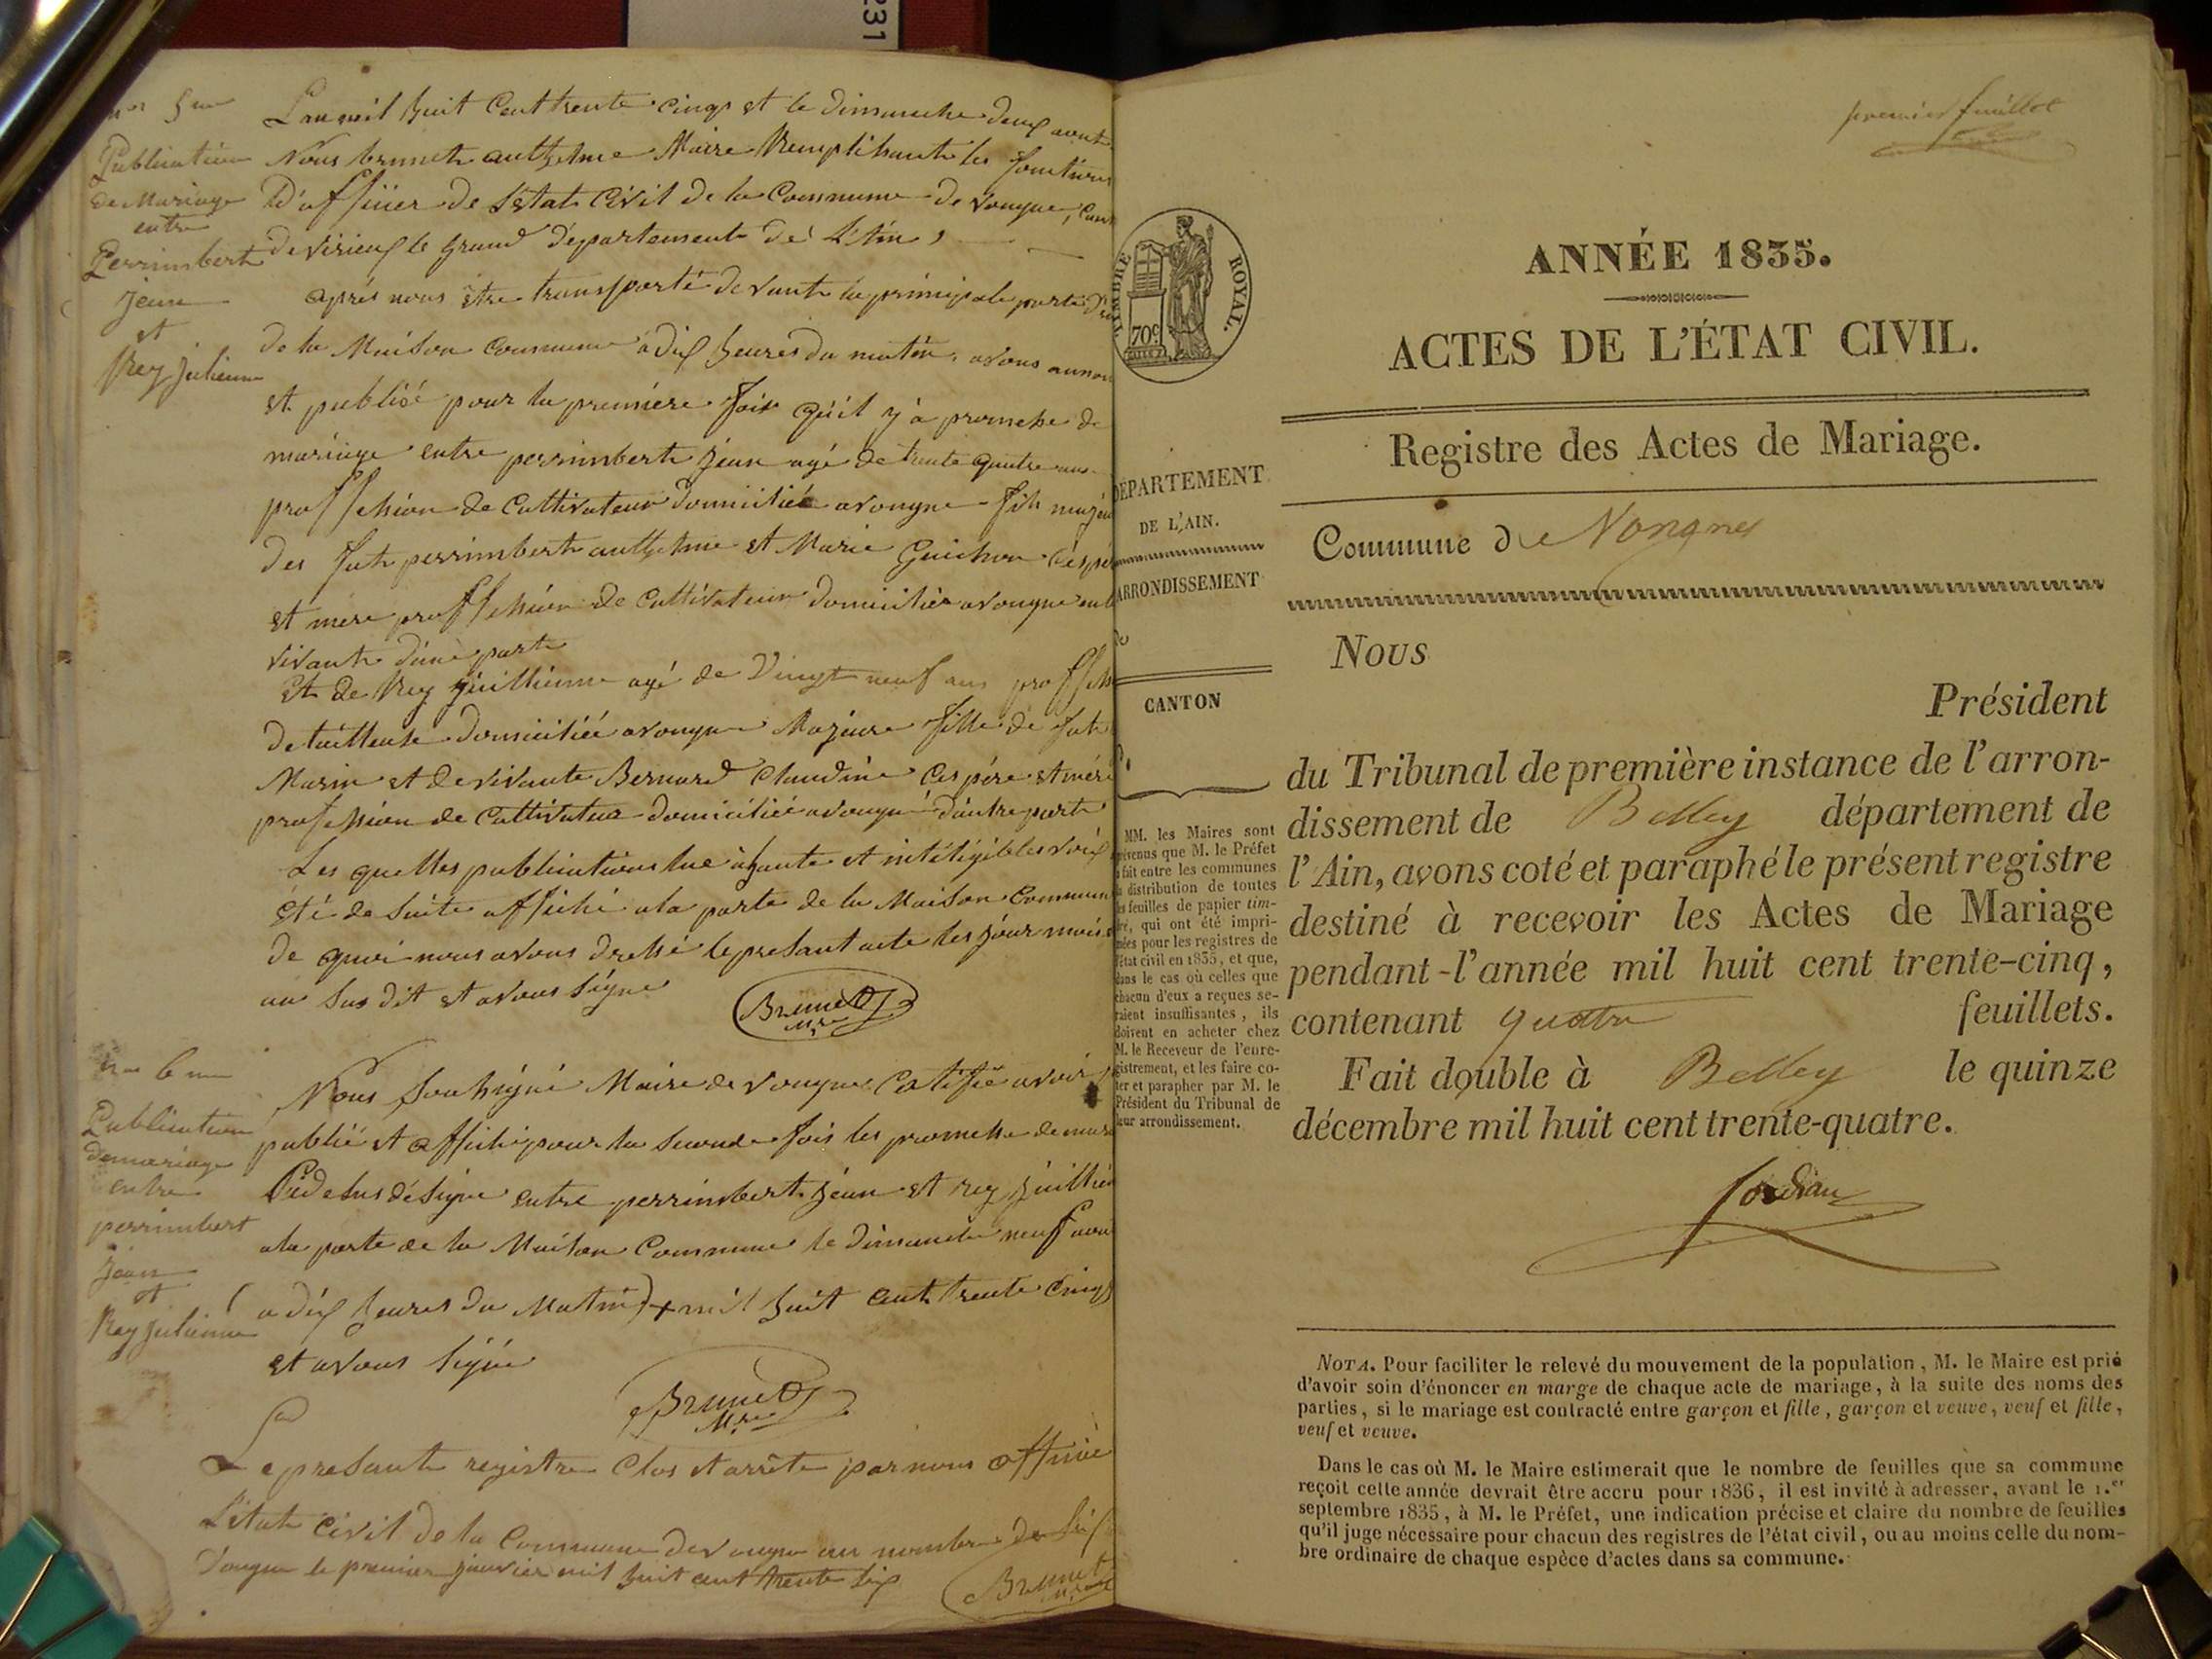 231
Publication
de Mariage
entre
Perrimbert
jean
et
Rey julienne
L'an mil huit Cent trente cinq et le dimanche deux aout
Nous brunet anthelme Maire Remplihant les fonctions
D'offiier de L'état Civil de la Commune de vongne,
de virieux le grand Département de L'Ain,
après nous être transporté devant la principale porte
de la Maison commune a dix heures du matin, avons
et publié pour la première fois qu'il y a promehe de
mariage entre perrimbert jean agé de trente quatre ans
proffehion de Cultivateur domicilié a vongne fils
des fut perrimbert anthelme et Marie Guichon
et mère proffehion de Cultivateur domiciliés a vongne
vivante d'une parte
Et de Rey juillienne agé de Vingt neuf ans
de tailleuse domiciliée a vongne Majeure fille de fut
Marin et de vivante Bernard Claudine Ces père et mère
profehion de Cultivateur domicilié a vongne d'autre parte
Les quelles publications lue a haute et intéligible voix
été de suite affiché a la porte de la Maison Commune
de quoi nous avons drehé le presant acte les jour mois
an Sus dit et avons Signé
Brunet
Mre
Publication
de mariage
entre
perrimbert
jean
et
Rey julienne
Nous Souhigné Maire de vongne Certifie avoir
publié et affiché pour la Seconde fois les promehe de
Cidesus désigné entre perrimbert jean et rey
a la porte de la Maison Commune le dimanche neuf
a dix heures du Matin mil huit cent trente Cinq
et avons Signé
Brunet
Mre
Le presante registre Clos et arrêté par nous
L'état Civil de la Commune de vongne au nombre de Six
Vongne le premier janvier mil huit cent trente Six
Brunet
premier feuillet
TIMBRE ROYAL.
70c
DÉPARTEMENT
DE L'AIN.
ARRONDISSEMENT
CANTON
MM. les Maires sont
prévenus que M. le Préfet
a fait entre les communes
la distribution de toutes
les feuilles de papier tim-
bré, qui ont été impri-
mées pour les registres de
l'état civil en 1835, et que,
dans le cas où celles que
chacun d'eux a reçues se-
raient insuffisantes, ils
doivent en acheter chez
M. le Receveur de l'enre-
gistrement, et les faire co-
ter et parapher par M. le
Président du Tribunal de
leur arrondissement.
ANNÉE 1835.
ACTES DE L'ÉTAT CIVIL.
Registre des Actes de Mariage.
Commune de Vongnes
Nous
Président
du Tribunal de première instance de l'arron-
dissement de Belley département de
l'Ain, avons coté et paraphé le présent registre
destiné à recevoir les Actes de Mariage
pendant l'année mil huit cent trente-cinq,
contenant quatre feuillets.
Fait double à Belley le quinze
décembre mil huit cent trente-quatre.
NOTA. Pour faciliter le relevé du mouvement de la population, M. le Maire est prié
d'avoir soin d'énoncer en marge de chaque acte de mariage, à la suite des noms des
parties, si le mariage est contracté entre garçon et fille, garçon et veuve, veuf et fille,
veuf et veuve.
Dans le cas où M. le Maire estimerait que le nombre de feuilles que sa commune
reçoit cette année devrait être accru pour 1836, il est invité à adresser, avant le 1.er
septembre 1835, à M. le Préfet, une indication précise et claire du nombre de feuilles
qu'il juge nécessaire pour chacun des registres de l'état civil, ou au moins celle du nom-
bre ordinaire de chaque espèce d'actes dans sa commune.